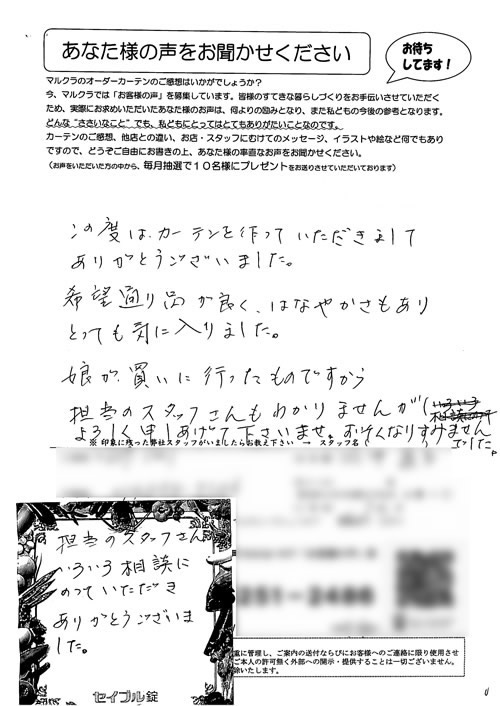 あなた様の声をお聞かせください
お待ち
してます！
マルクラのオーダーカーテンのご感想はいかがでしょうか？
今、マルクラでは「お客様の声」を募集しています。皆様のすてきな暮らしづくりをお手伝いさせていただく
ため、実際にお求めいただいたあなた様のお声は、何よりの励みとなり、また私どもの今後の参考となります。
どんな“ささいなこと”でも、私どもにとってはとてもありがたいことなのです。
カーテンのご感想、他店との違い、お店・スタッフにむけてのメッセージ、イラストや絵など何でもあり
ですので、どうぞご自由にお書きの上、あなた様の率直なお声をお聞かせください。
（お声をいただいた方の中から、毎月抽選で１０名様にプレゼントをお送りさせていただいております）
この度は、カーテンを作って いただきまして
ありがとうございました。
希望通り品が良く、はなやかさもあり
とっても気に入りました。
娘が、買いに行ったものですから
担当のスタッフさんもわかりませんが（
よろしく申しあげて下さいませ。おそくなりすみません
でした。
※ 印象に残った弊社スタッフがいましたらお教え下さい → スタッフ名（
担当のスタッフさん
いろいろ相談に
のっていただき
ありがとうございま
した。
セイブル錠
251-2486
重に管理し、ご案内の送付ならびにお客様へのご連絡に限り使用させ
ご本人の許可無く外部への開示・提供することは一切ございません。
除いたします。